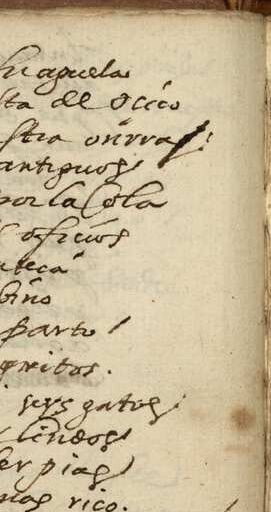 huaquela
sta de ocico
stra onrra
antiguos
por la Cola
oficios
uteca
bino
parto
gritos.
seys gatos
lindos
er pias
mas rico.